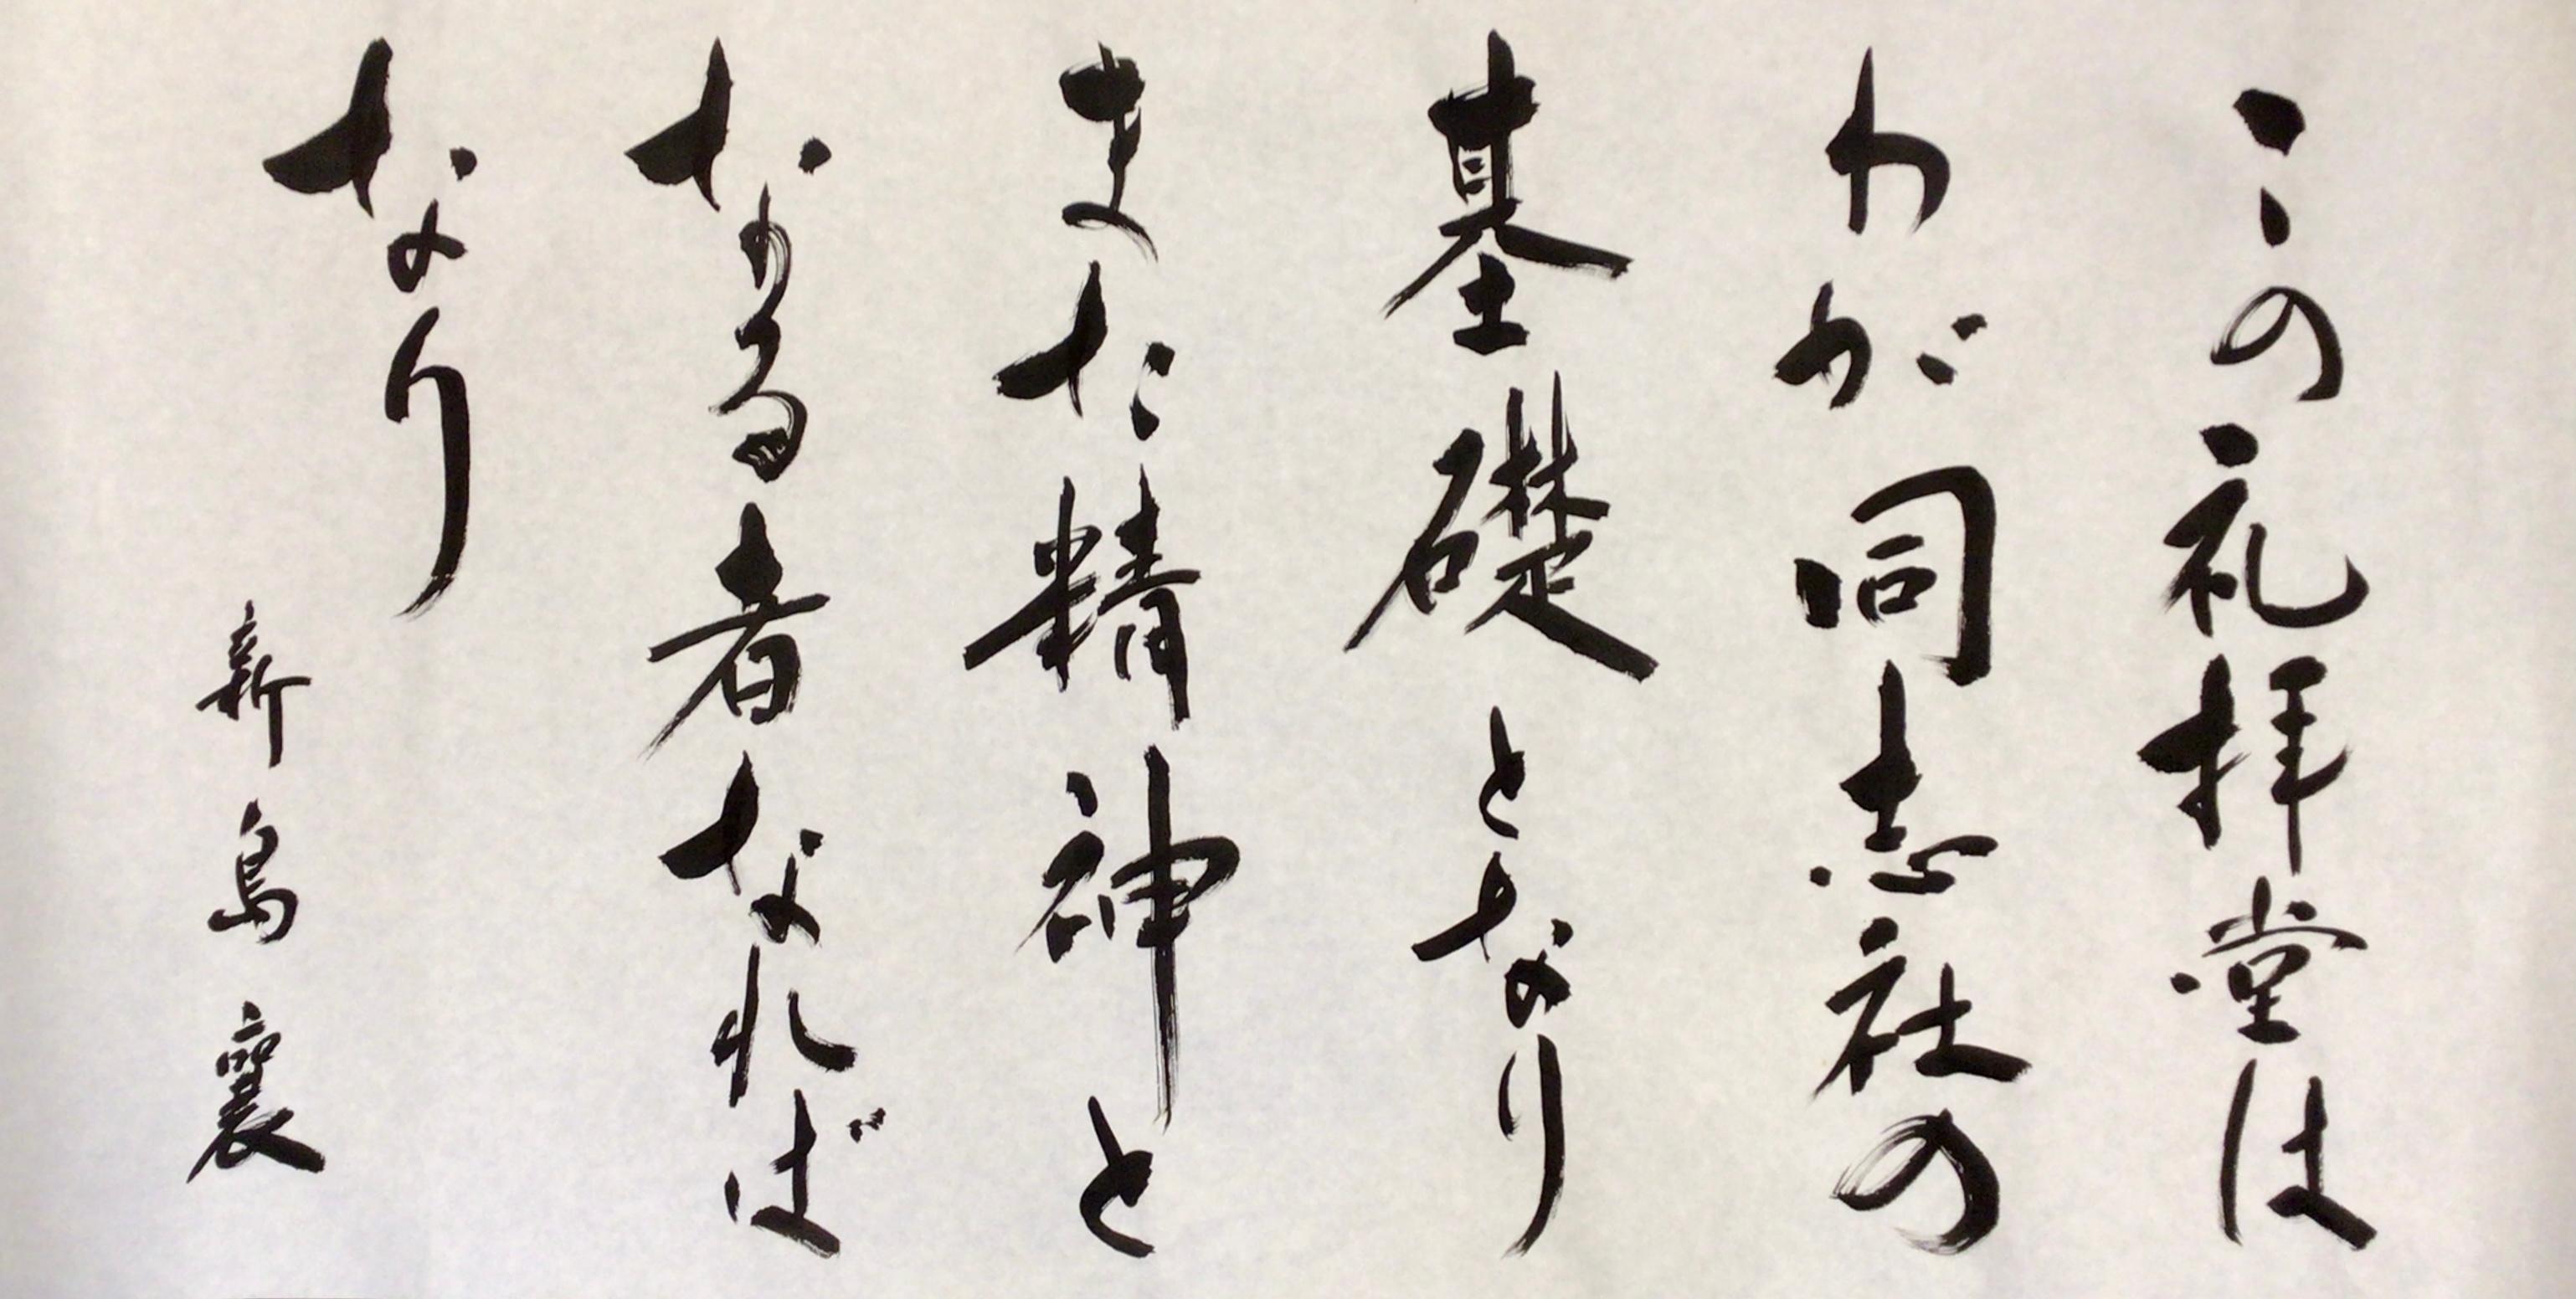 この礼拝堂は
わが同志社の
基礎となり
また精神と
なる者なれば
なり
新島襄